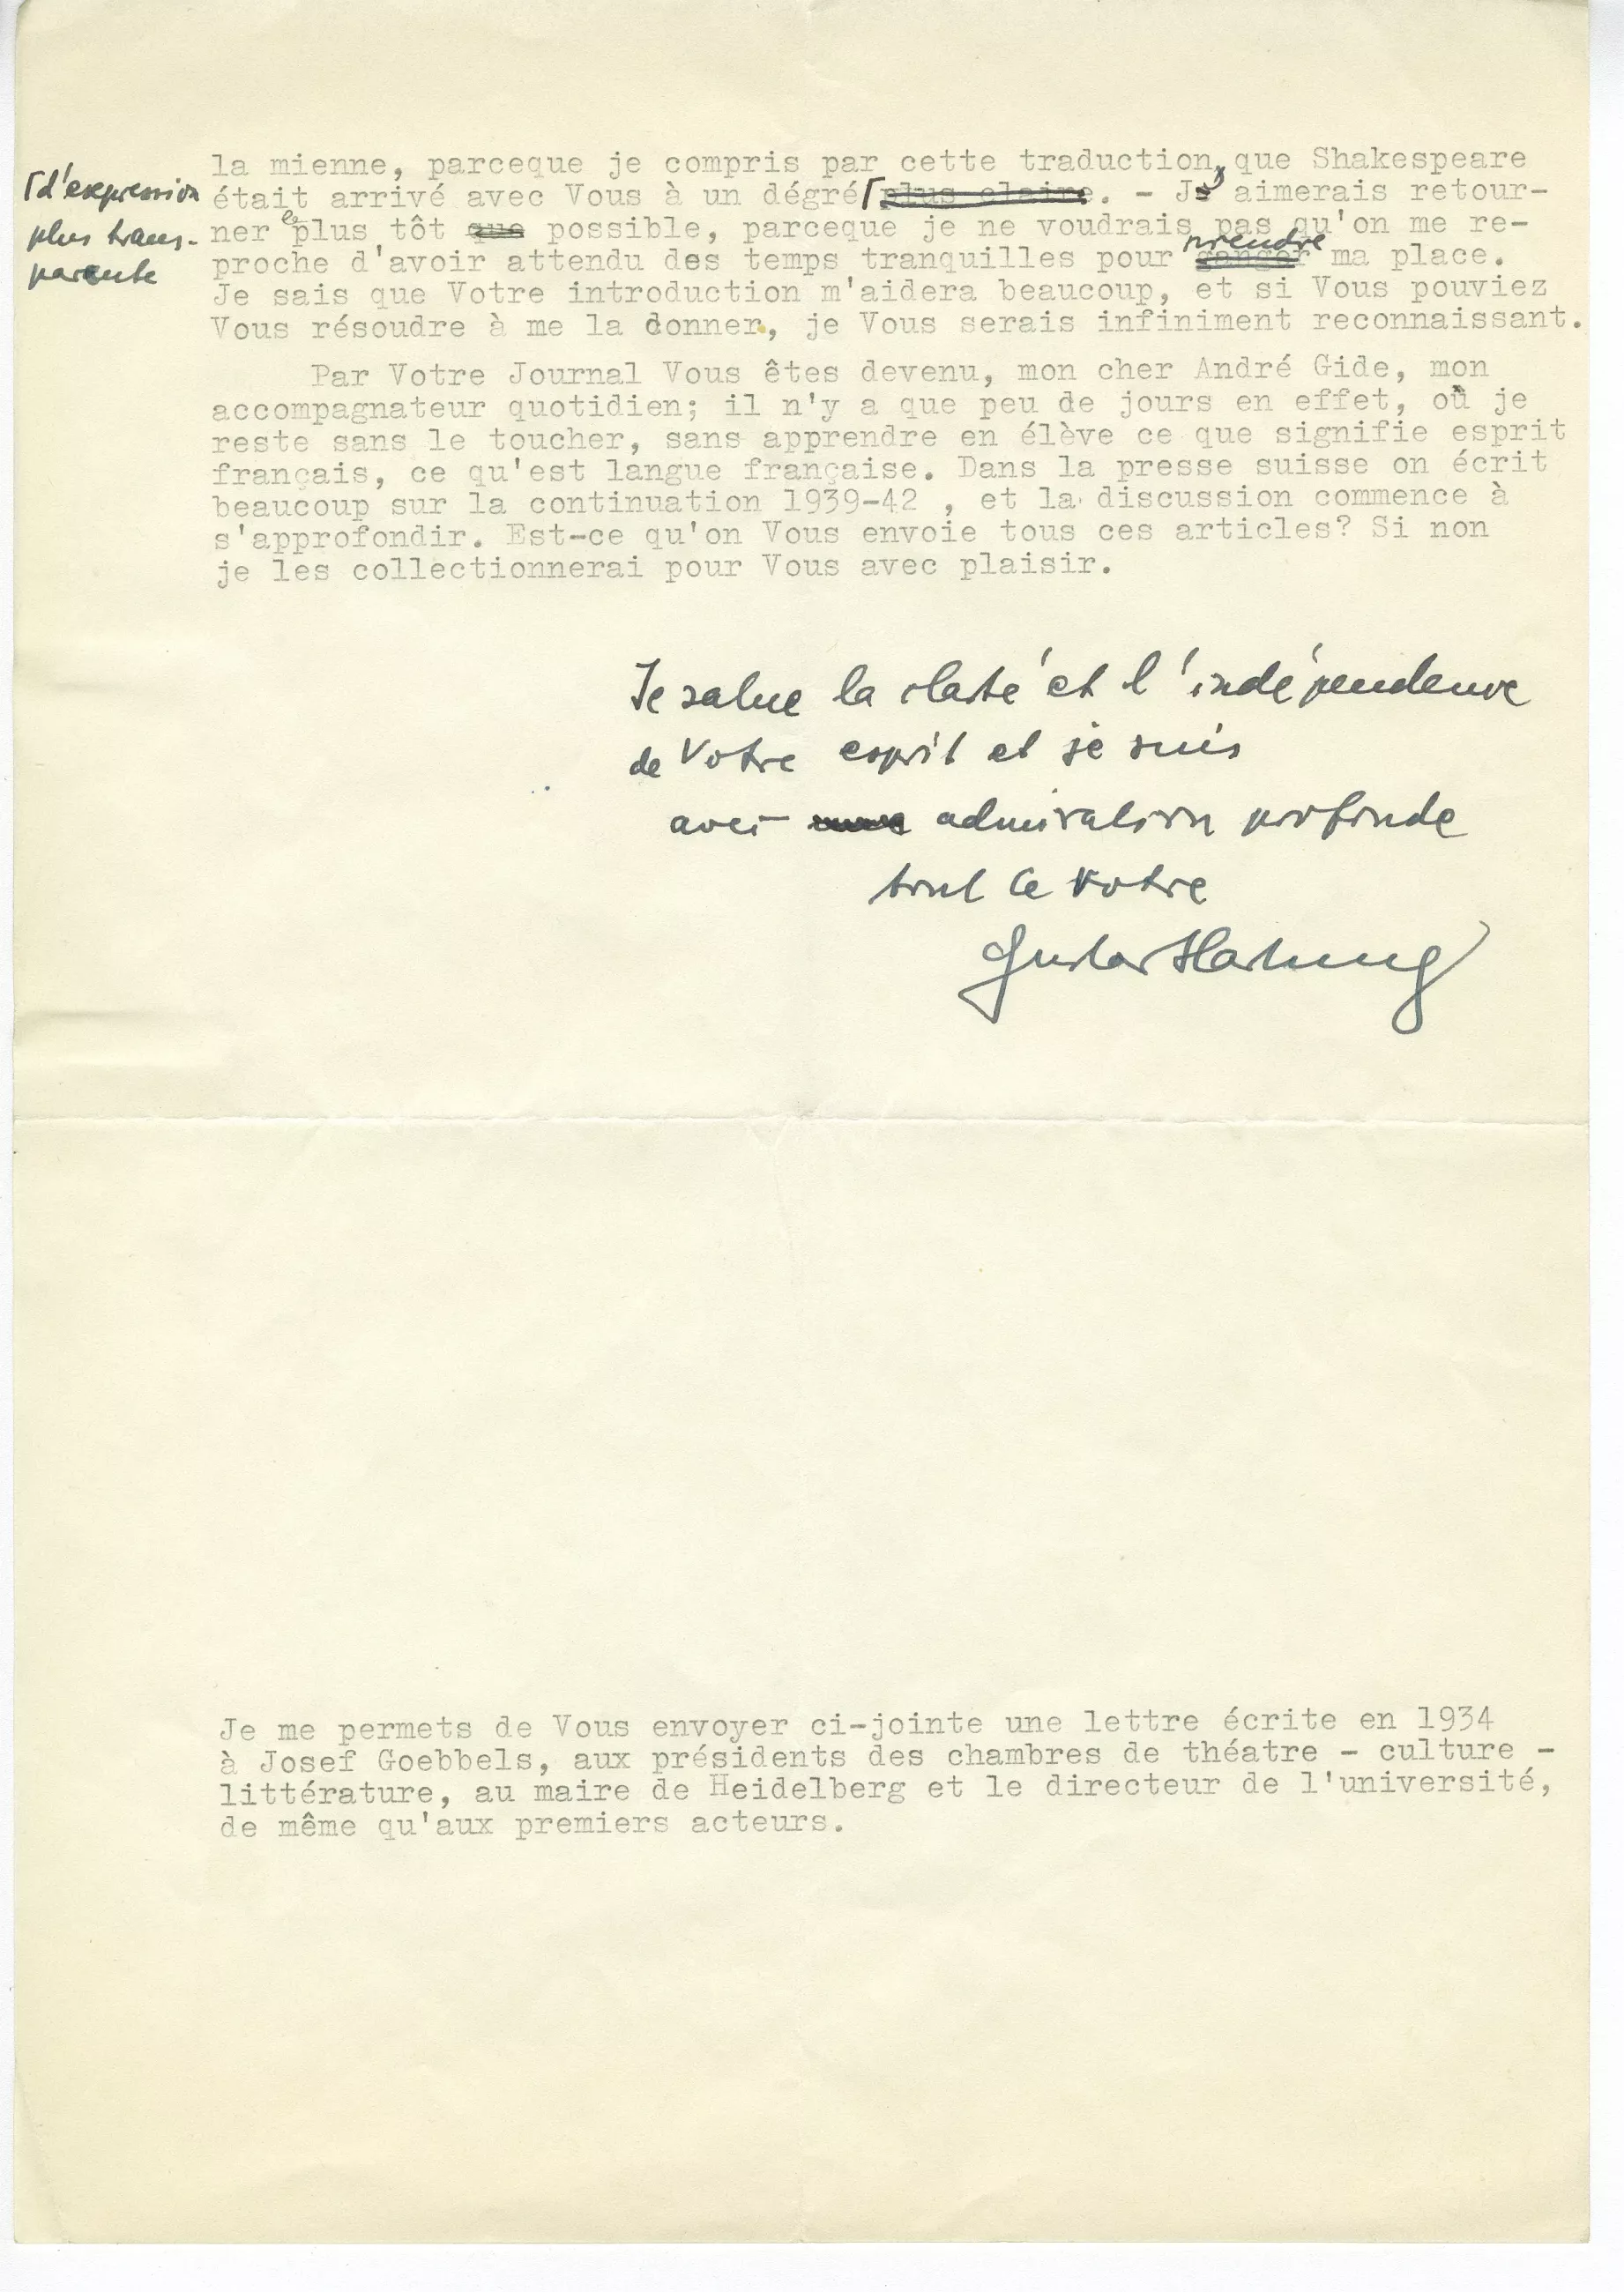 la mienne, parceque je compris par cette traduction, que Shakespeare
⌈d'expression
était arrivé avec Vous à un dégré⌈ plus claire. - J' aimerais retour-
plus trans-
ner le plus tôt que possible, parceque je ne voudrais pas qu'on me re-
parente
prendre
proche d'avoir attendu des temps tranquilles pour ma place.
Je sais que Votre introduction m'aidera beaucoup, et si Vous pouviez
Vous résoudre à me la donner, je Vous serais infiniment reconnaissant.
Par Votre Journal Vous êtes devenu, mon cher André Gide, mon
accompagnateur quotidien; il n'y a que peu de jours en effet, où je
reste sans le toucher, sans apprendre en élève ce que signifie esprit
français, ce qu'est langue française. Dans la presse suisse on écrit
beaucoup sur la continuation 1939-42 , et la discussion commence à
s'approfondir. Est-ce qu'on Vous envoie tous ces articles? Si non
je les collectionnerai pour Vous avec plaisir.
Je salue la clarté et l'indépendence
de Votre esprit et je suis
avec admiration profonde
tout le votre
Gustav Hartung
Je me permets de Vous envoyer ci-jointe une lettre écrite en 1934
à Josef Goebbels, aux présidents des chambres de théatre - culture -
littérature, au maire de Heidelberg et le directeur de l'université,
de même qu'aux premiers acteurs.